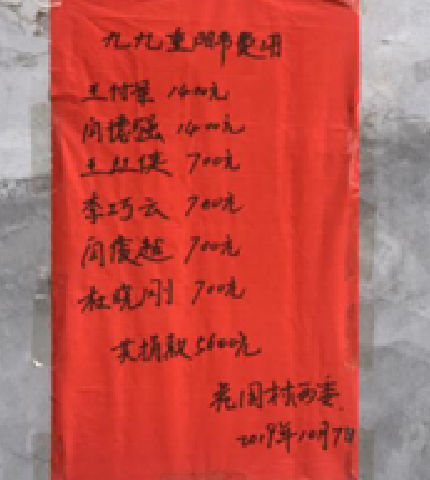 九九重阳节费用
王付举 1400元
闫德强 1400元
王红侠 700元
李巧云 700元
闫俊超 700元
杜晓刚 700元
共捐款5600元
尧固村两委
2019年10月7日